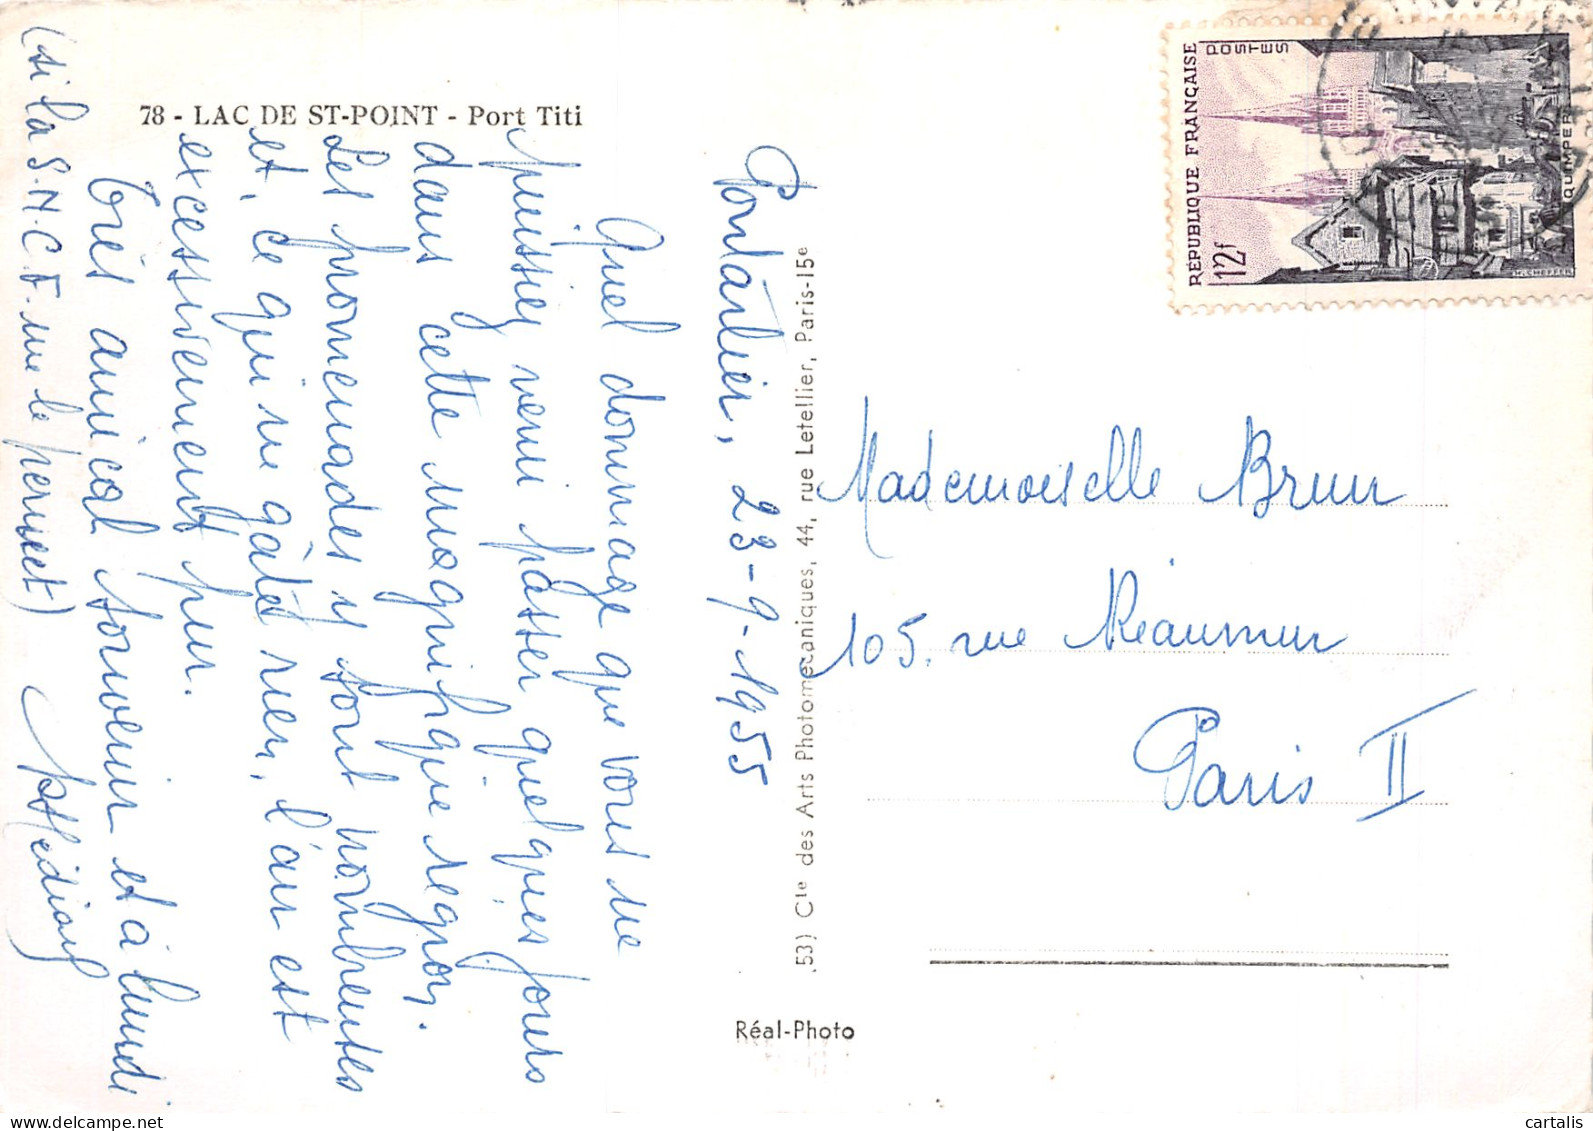 78 - LAC DE ST-POINT - Port Titi
Pontarlier, 23-9-1955
Quel dommage que vous ne
puissiez venir passer quelques jours
dans cette magnifique region.
Les promenades y sont nombreuses
et, ce qui ne gâte rien, l'air est
excessivement pur.
Très amical souvenir et à lundi
(si la S.N.C.F. me le permet)
Mademoiselle Brun
105, rue Réaumur
Paris II
(53) Cie des Arts Photomécaniques, 44, rue Letellier, Paris-15e
Réal-Photo
RÉPUBLIQUE FRANÇAISE
POSTES
12f
QUIMPER
delcampe.net
cartalis